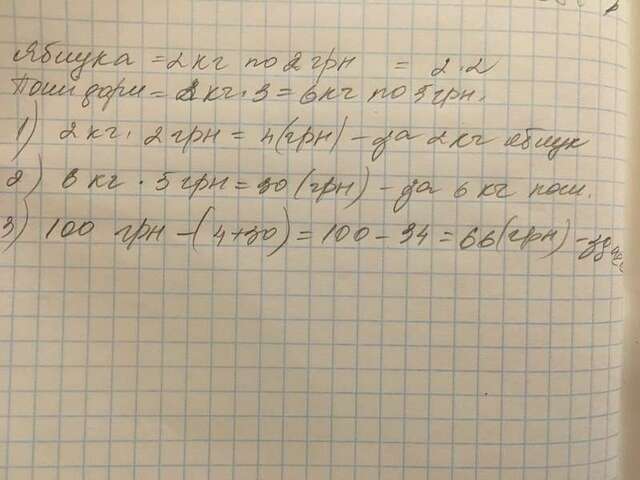 Яблука = 2 кг по 2 грн = 2·2
Помідори = 2 кг · 3 = 6 кг по 5 грн.
1) 2 кг · 2 грн = 4 (грн) - за 2 кг яблук
2) 6 кг · 5 грн = 30 (грн) - за 6 кг пом.
3) 100 грн - (4+30) = 100 - 34 = 66 (грн) -